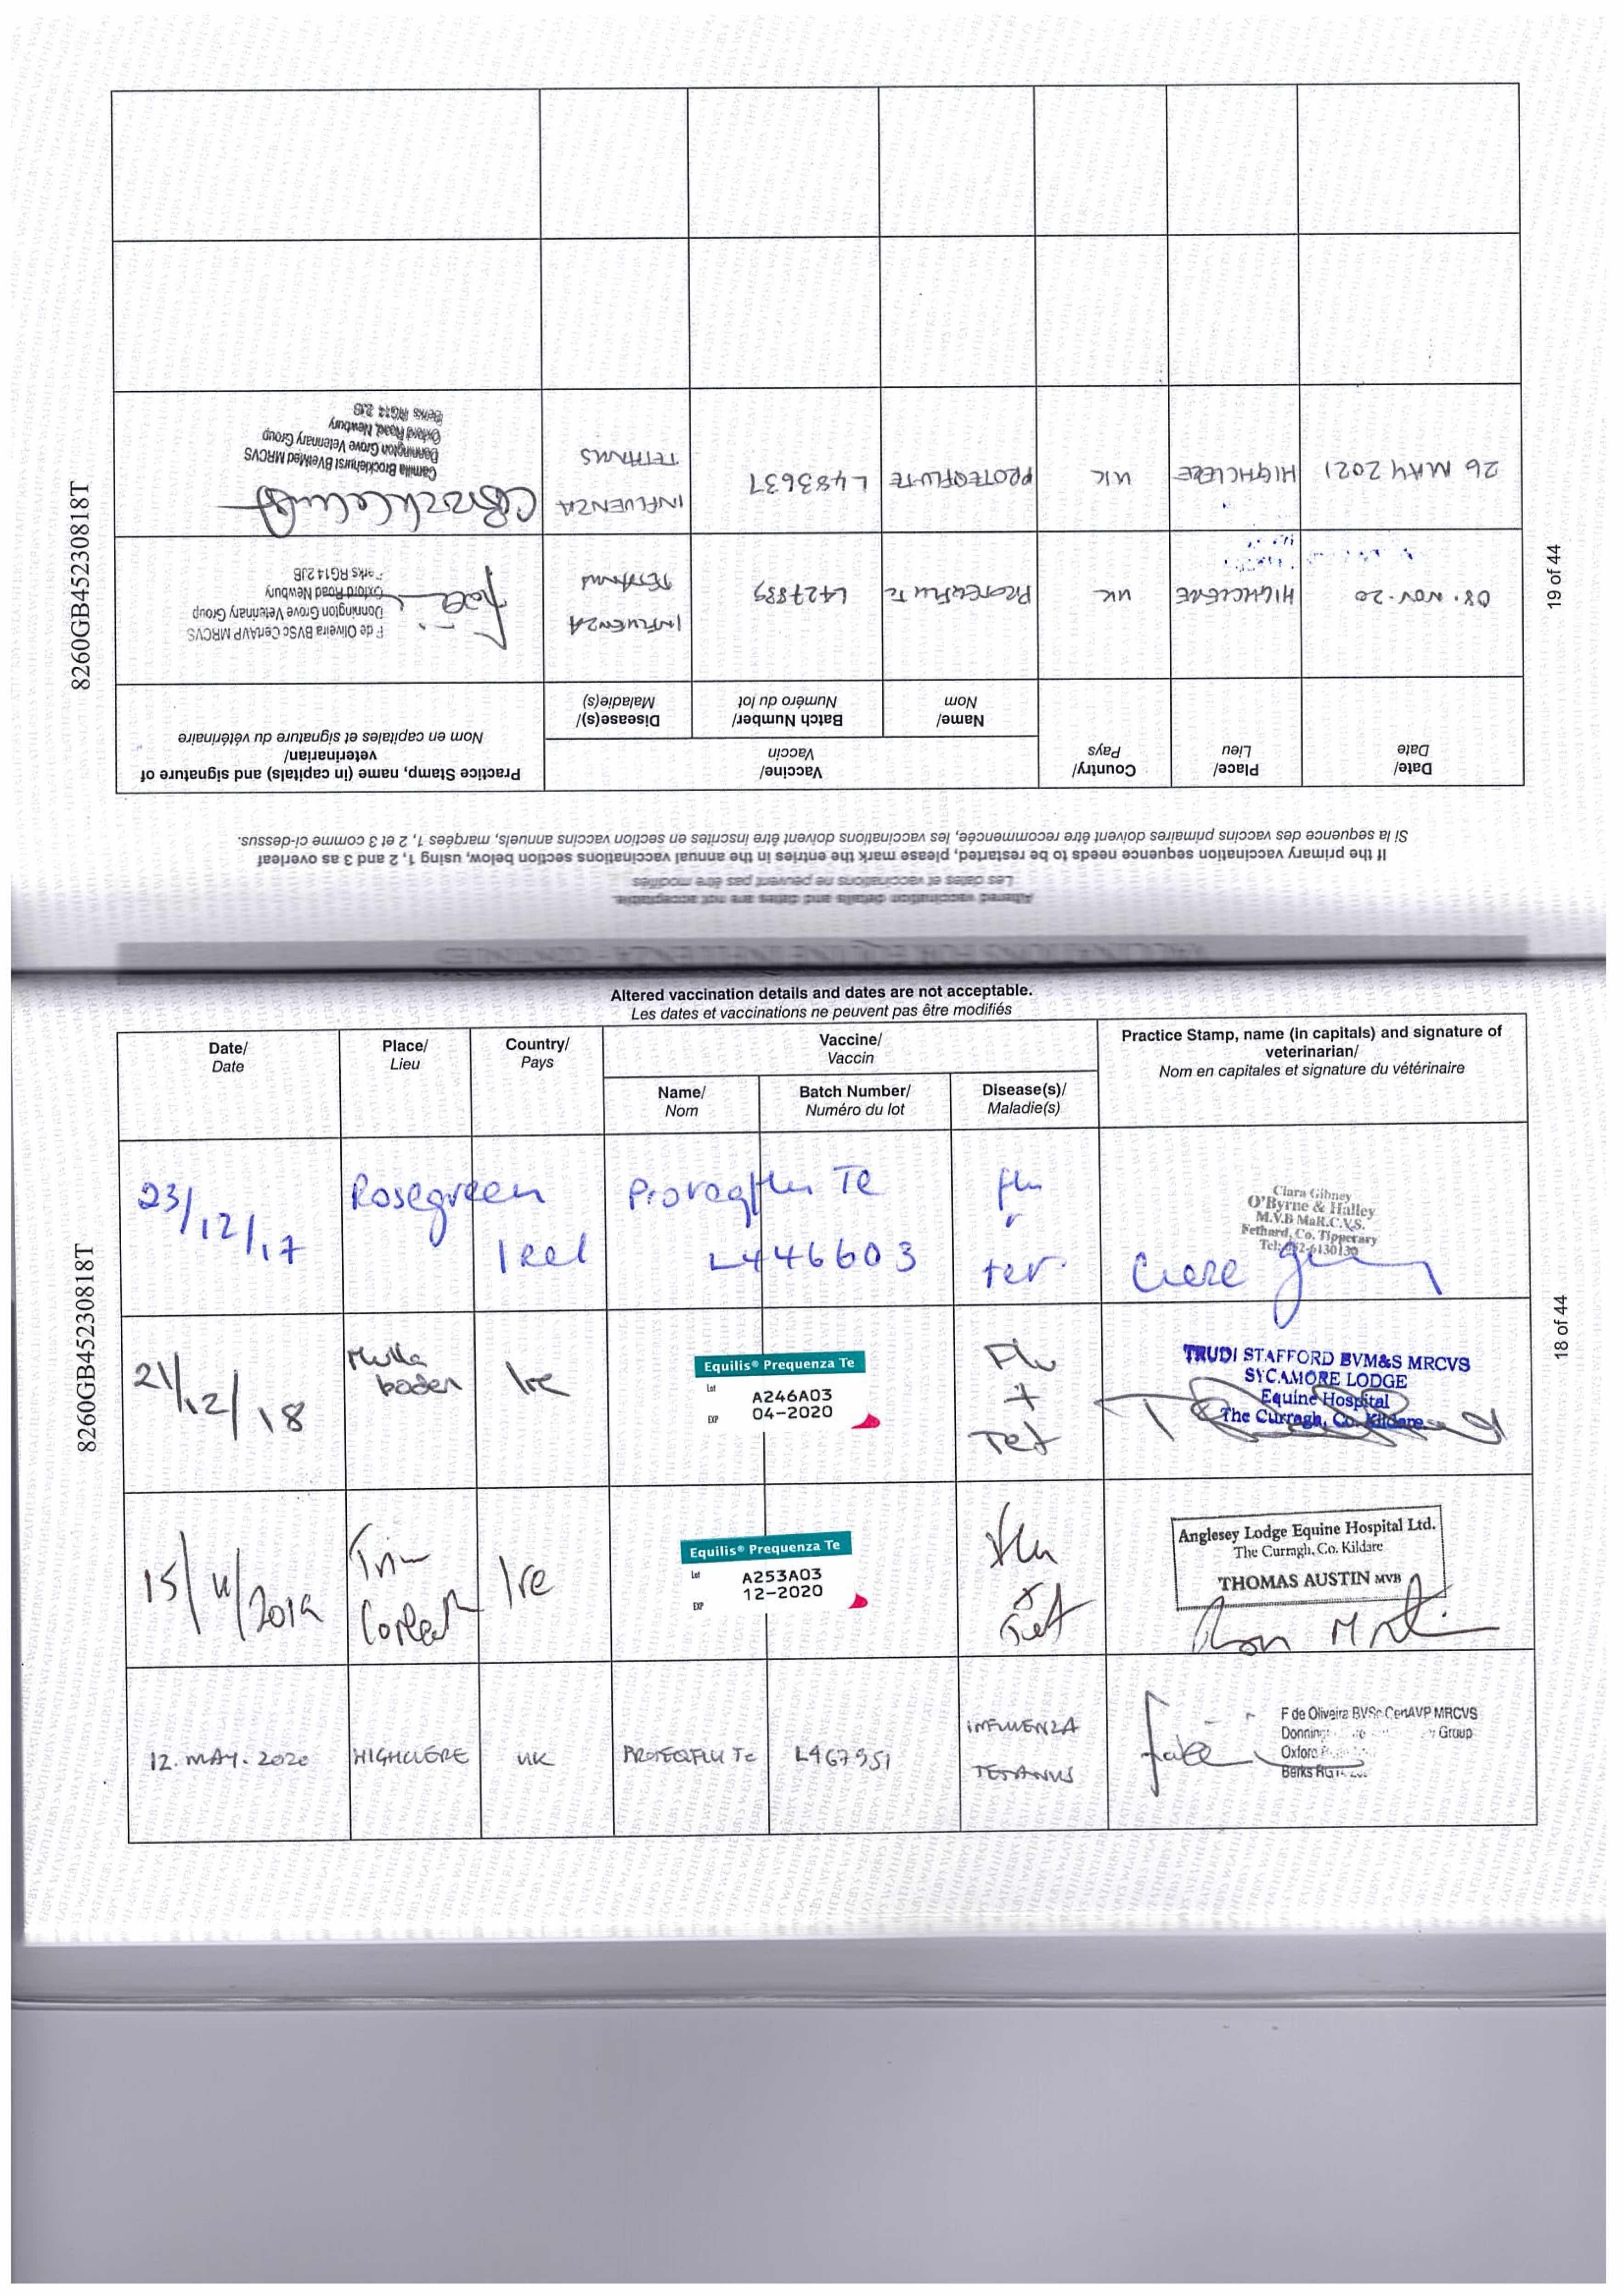 Altered vaccination details and dates are not acceptable.
Les dates et vaccinations ne peuvent pas être modifiés
Date/
Date
Place/
Lieu
Country/
Pays
Vaccine/
Vaccin
Name/
Nom
Batch Number/
Numéro du lot
Disease(s)/
Maladie(s)
Practice Stamp, name (in capitals) and signature of
veterinarian/
Nom en capitales et signature du vétérinaire
23/12/17
Rosegreen
Irel
Proteqflu Te
L446603
flu
tet
Ciara Gibney
O'Byrne & Halley
M.V.B MaR.C.V.S.
Fethard, Co. Tipperary
Tel: 052-6130130
21/12/18
Mulla
boden
Ire
Equilis® Prequenza Te
Lot A246A03
EXP 04-2020
Flu
+
Tet
TRUDI STAFFORD BVM&S MRCVS
SYCAMORE LODGE
Equine Hospital
The Curragh, Co. Kildare
15/11/2019
Trim
Ire
Equilis® Prequenza Te
Lot A253A03
EXP 12-2020
Flu
&
Tet
Anglesey Lodge Equine Hospital Ltd.
The Curragh, Co. Kildare
THOMAS AUSTIN MVB
12. MAY. 2020
HIGHCLERE
UK
PROTEQFLU Te
L467951
INFLUENZA
TETANUS
F de Oliveira BVSc CertAVP MRCVS
Group
Berks
8260GB452230818T
18 of 44
Altered vaccination details and dates are not acceptable.
Les dates et vaccinations ne peuvent pas être modifiés
If the primary vaccination sequence needs to be restarted, please mark the entries in the annual vaccinations section below, using 1, 2 and 3 as overleaf
Si la sequence des vaccins primaires doivent être recommencée, les vaccinations doivent être inscrites en section vaccins annuels, marqées 1, 2 et 3 comme ci-dessus.
Date/
Date
Place/
Lieu
Country/
Pays
Vaccine/
Vaccin
Name/
Nom
Batch Number/
Numéro du lot
Disease(s)/
Maladie(s)
Practice Stamp, name (in capitals) and signature of
veterinarian/
Nom en capitales et signature du vétérinaire
08. NOV. 20
HIGHCLERE
UK
PROTEQFLU Te
L427889
INFLUENZA
TETANUS
F de Oliveira BVSc CertAVP MRCVS
Donnington Grove Veterinary Group
Oxford Road Newbury
Berks RG14 2JB
26 MAY 2021
HIGHCLERE
UK
PROTEQFLU-TE
L483637
INFLUENZA
TETANUS
Camilla Brocklehurst BVetMed MRCVS
Donnington Grove Veterinary Group
Oxford Road, Newbury
Berks RG14 2JB
8260GB452230818T
19 of 44